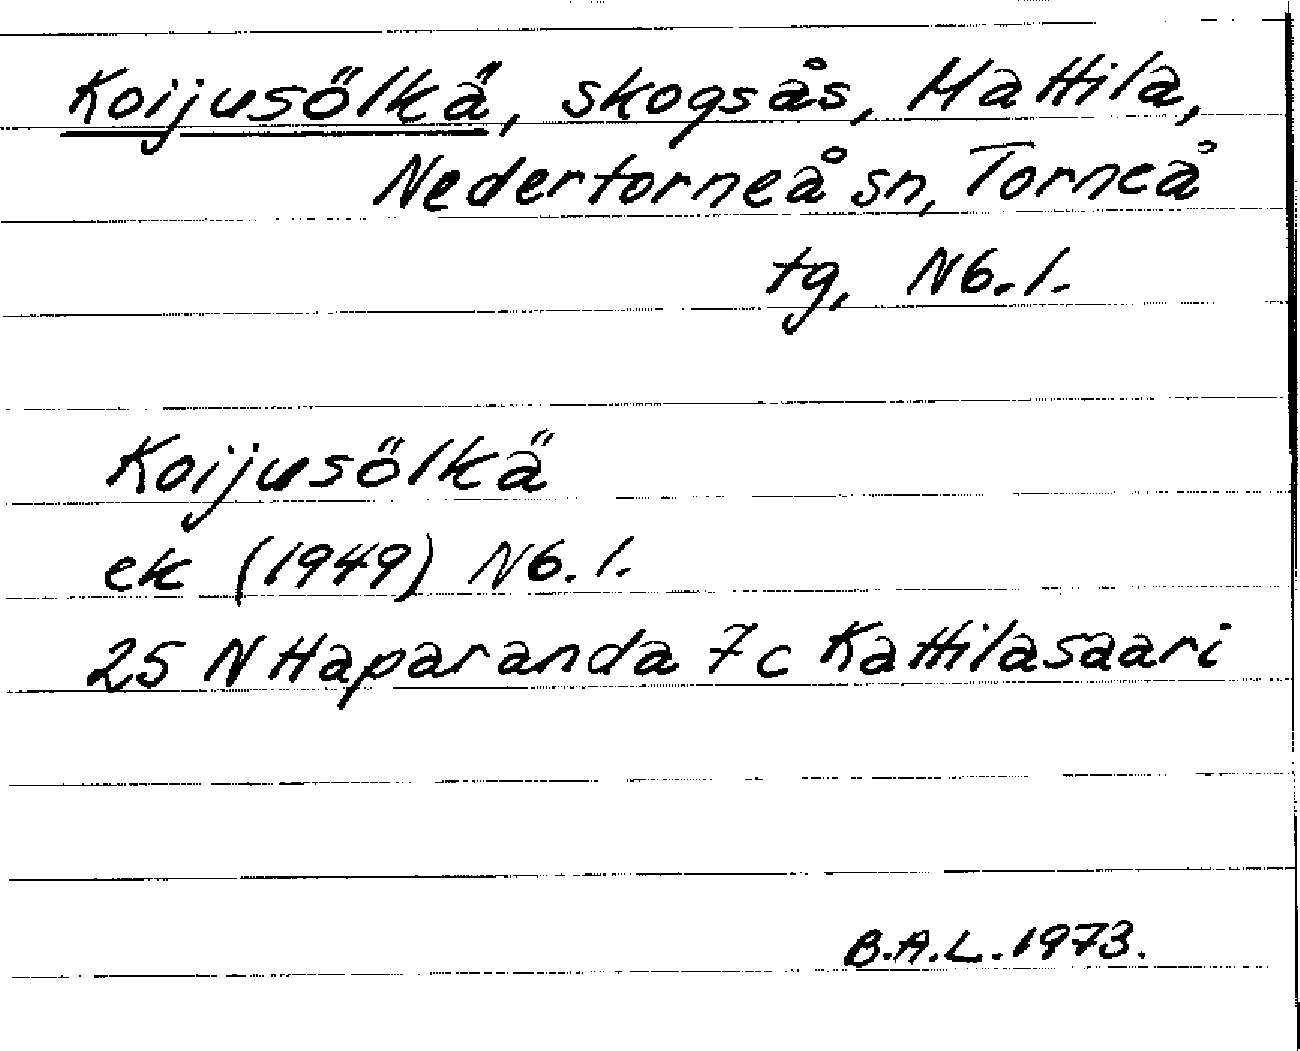 Koijusölkä, skogsås, Mattila,
Nedertorneå sn, Torneå
tg, Nb. l.
Koijusölkä
ek (1949) Nb. l.
25 N Haparanda 7c Kattilasaari
B.A.L. 1973.